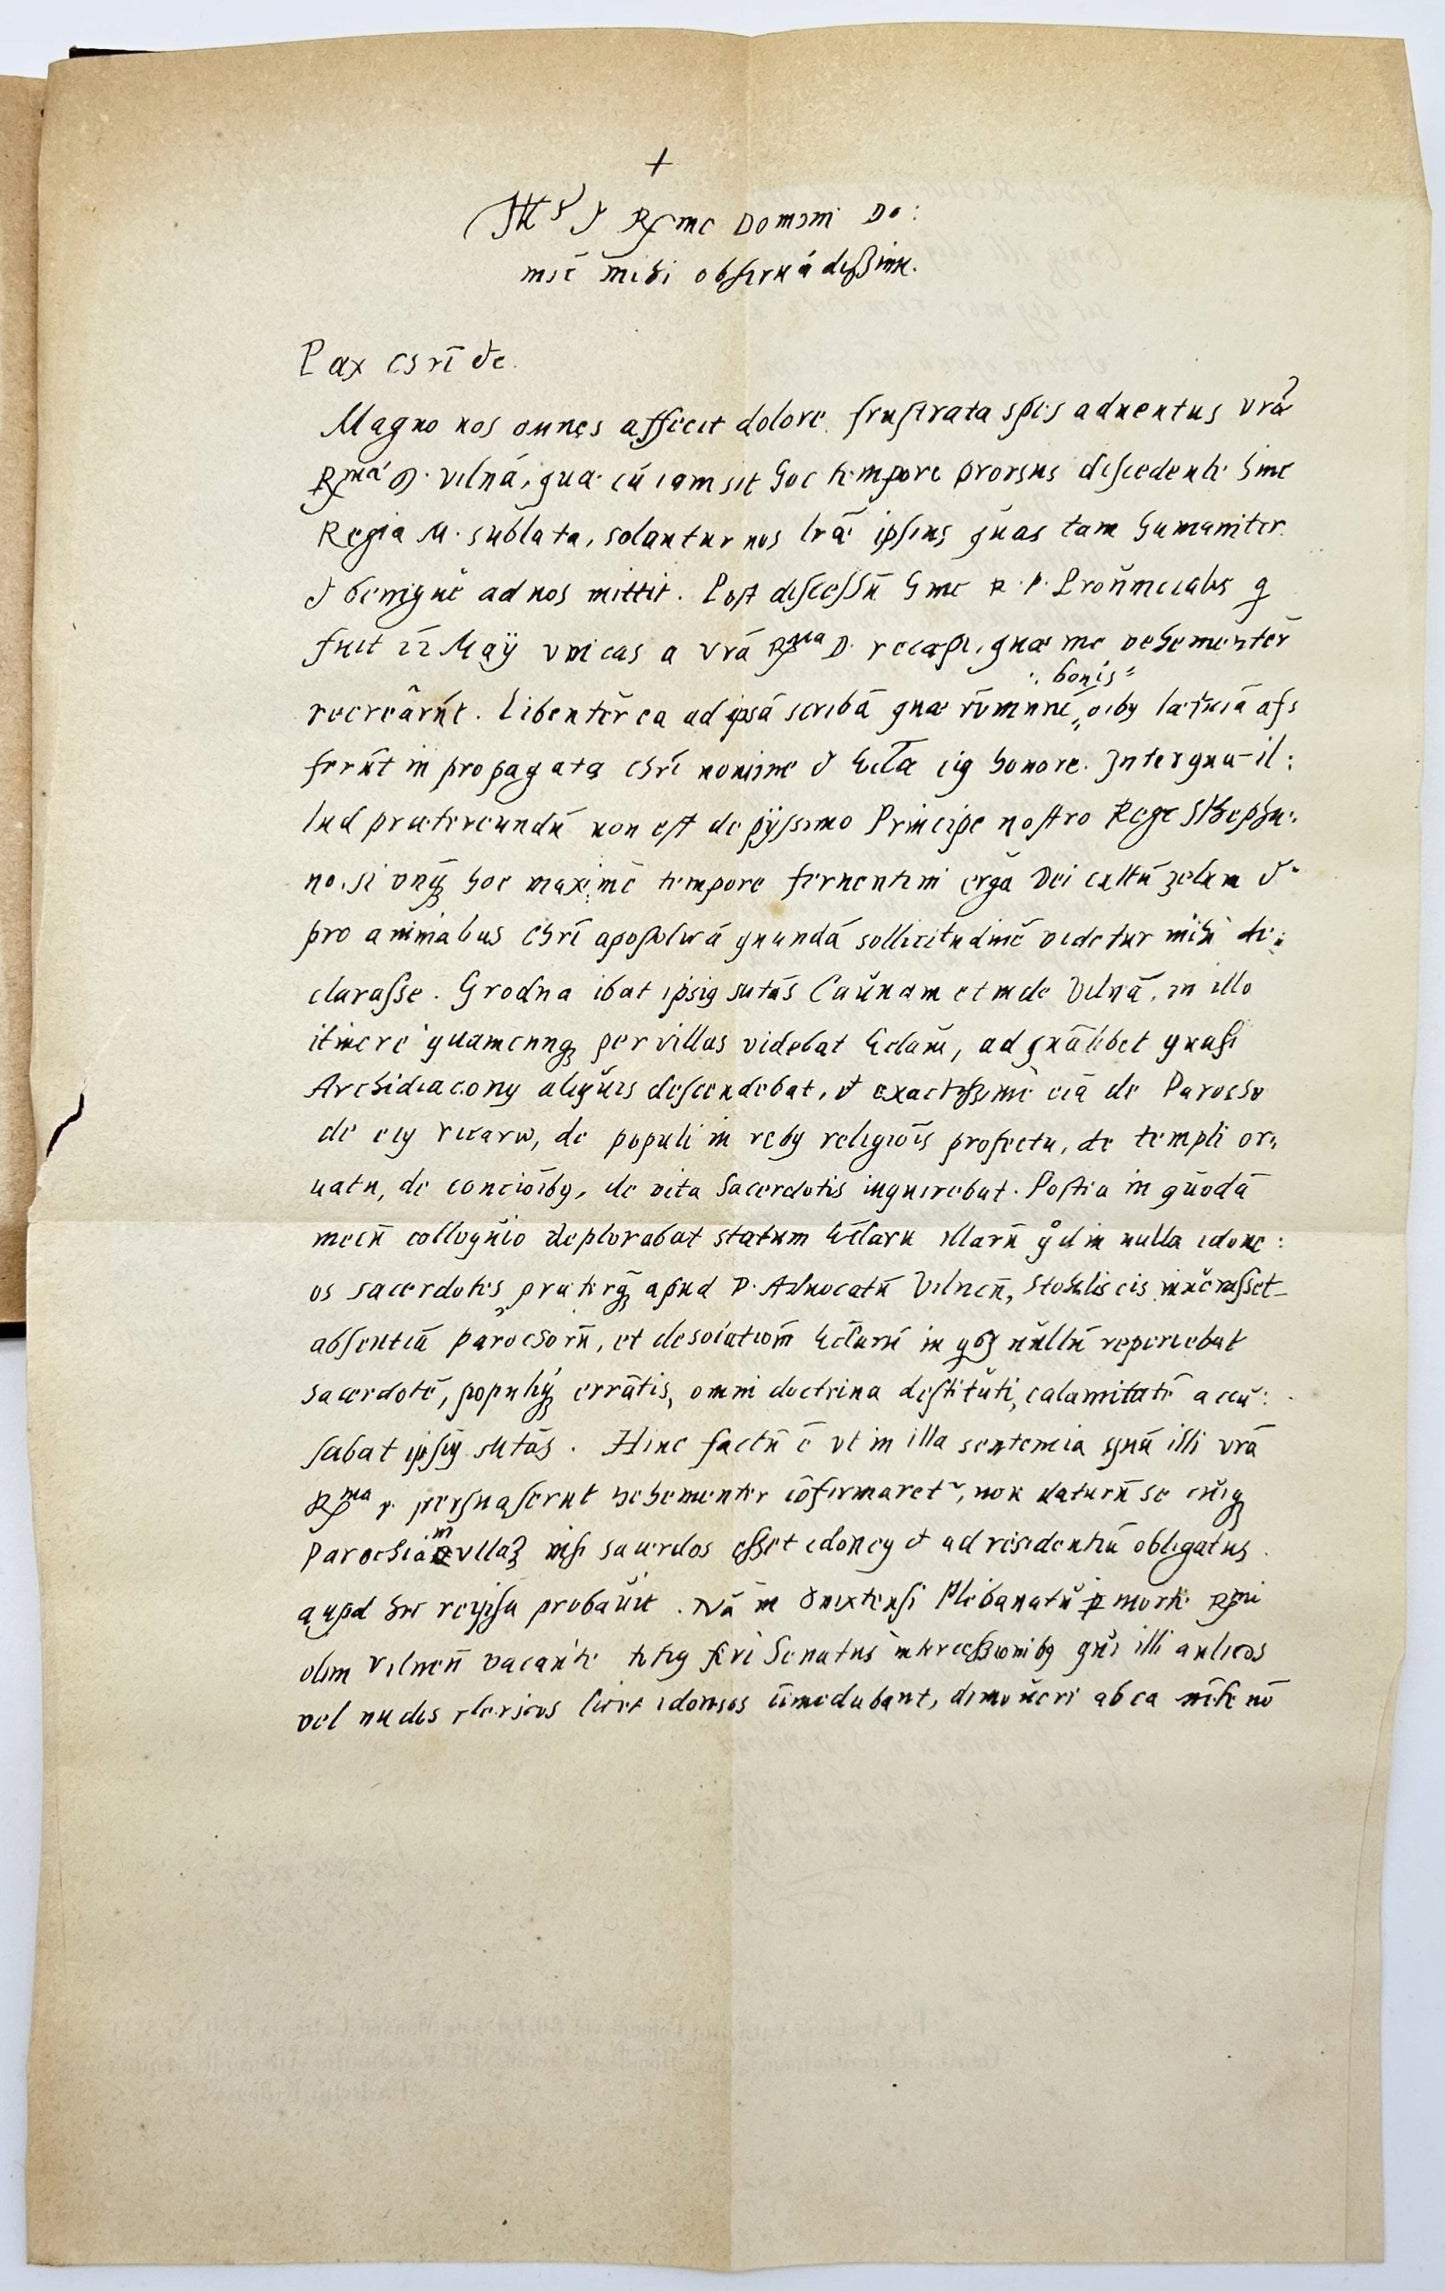 +
Ill & Rx̃me Domine Do:
mie mihi obseruãdissime.
Pax Chrĩ &c.
Magno nos omnes affecit dolore frustrata spes aduentus vrã
Rx̃ma D. vilnã, qua cũ iam sit hoc tempore prorsus discedente hinc
Regia M. sublata, solantur nos lrã ipsius quas tam humaniter
& benigně ad nos mittit. Post discessũ hinc R. P. Prouincialis q
fuit 22 Maÿ vnicas a vrã Rx̃ma D. recæpi, quæ me vehementer
∴ bonis "
recreãrũt. Libentěr ea ad ipsã scribã quæ " oiby lætitiã afs
ferũt in propagata Chrĩ nomine & Eccľa eiꝰ honore. Interqua-il:
lud prætereundũ non est de pÿssimo Principe nostro Rege Stepha:
no, si vnqꝫ hoc maximě tempore feruentem ergã Dei cultũ zelum &
pro animabus Chrĩ apostolicã quandã sollicitudinẽ videtur mihi de:
clarasse. Grodna ibat ipsiꝰ Mtãs Caǔnam et inde Vilnã, in illo
itinere quamcunqꝫ per villas videbat Eclam̃, ad quãlibet quasi
Archidiaconꝰ aliquis descendebat, & exactissimè eiã de Parocho
de eiꝰ vicario, de populi in rebꝰ religiõis profectu, de templi or:
natu, de conciõibꝰ, de vita Sacerdotis inquirebat. Postea in quodã
mecũ colloquio deplorabat statum Eccľarũ illarũ qd in nulla idone:
os sacerdotes præterqꝫ apud D. Aduocatũ Vilnẽn, Stokliscis inuenrasset
absentiã parochorũ, et desolationẽ Eccľarũ in qbꝫ nullũ reperiebat
sacerdotẽ, populiqꝫ errãtis, omni doctrina destituti, calamitatẽ accu:
sabat ipsiꝰ Mtãs. Hinc factũ ẽ vt in illa sentencia quã illi vrã
Rx̃ma p. persuaserat vehementer cõfirmaret, non daturũ se cuiqꝫ
m
Parochiã vllaꝫ nisi sacerdos esset idoneꝰ & ad residentiã obligatus
quod hic reipsa probauit. Nã in Onixtensi Plebanatu p morte Rx̃mi
olim vilnẽn vacante totiꝰ ferè Senatus intercessionibꝰ qui illi aulicos
vel nudos clericos licet idoneos cõmedabant, dimoueri ab ea mẽte nõ